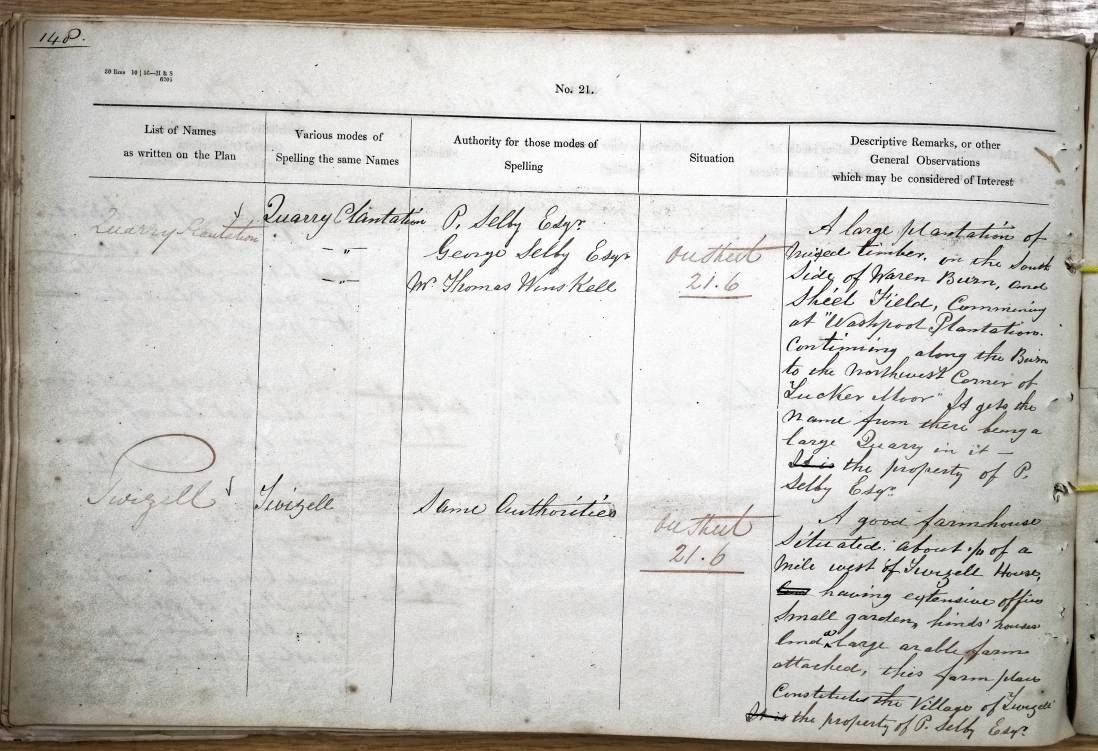 148.
No. 21.
List of Names
as written on the Plan
Various modes of
Spelling the same Names
Authority for those modes of
Spelling
Situation
Descriptive Remarks, or other
General Observations
which may be considered of Interest
Quarry Plantation
Quarry Plantation
— „ —
— „ —
P. Selby Esqr.
George Selby Esqr
Mr Thomas Winskell
On Sheet
21.6
A large plantation of
mixed timber, on the South
Side of Waren Burn, and
Sheel Field, Commencing
at "Washpool Plantation.
Continuing along the Burn
to the Northwest Corner of
Lucker Moor" It gets the
Name from there being a
large Quarry in it —
It is the property of P.
Selby Esqr.
Twizell
Twizell
Same Authorities
On Sheet
21.6
A good farmhouse
Situated about of a
mile west of Twizell House,
having extensive offices
Small garden, hinds' houses
and a large arable farm
attached, this farm place
Constitutes the Village of Twizell
It is the property of P. Selby Esqr.